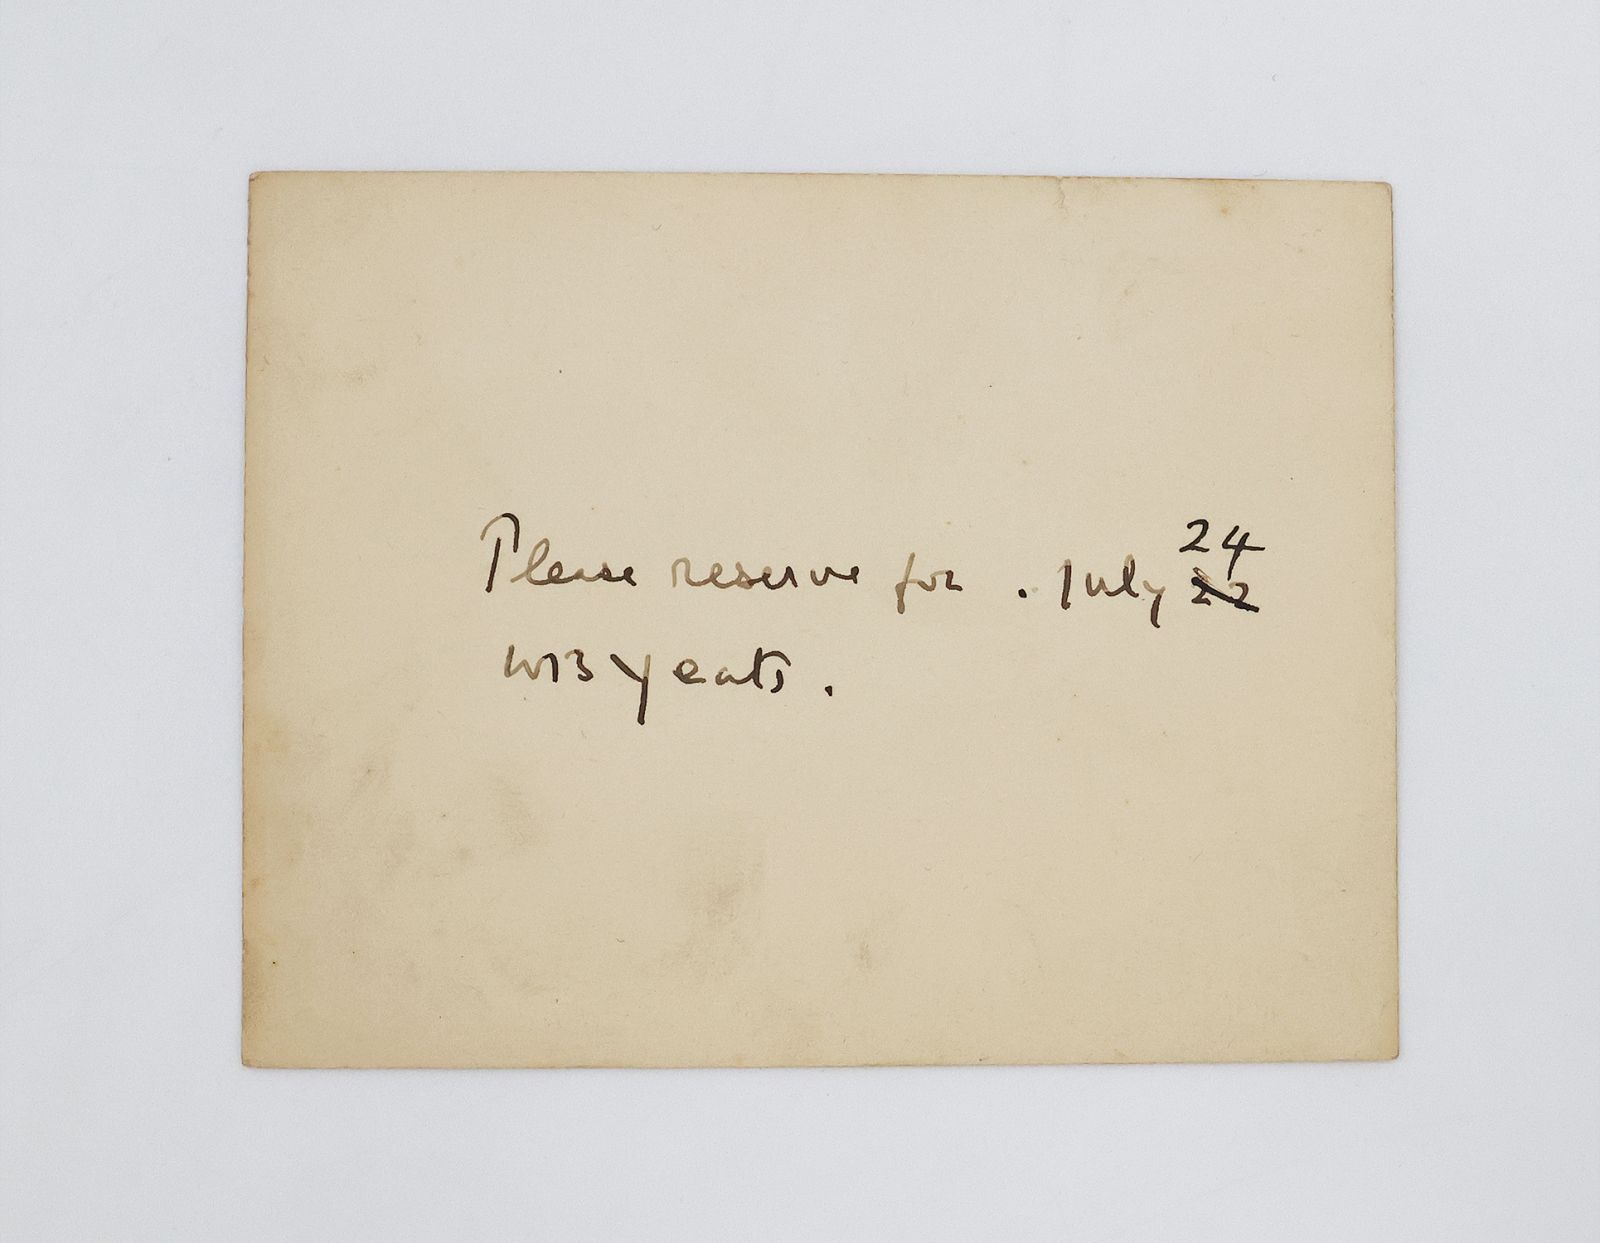 Please reserve for . July 24
22
WB Yeats .